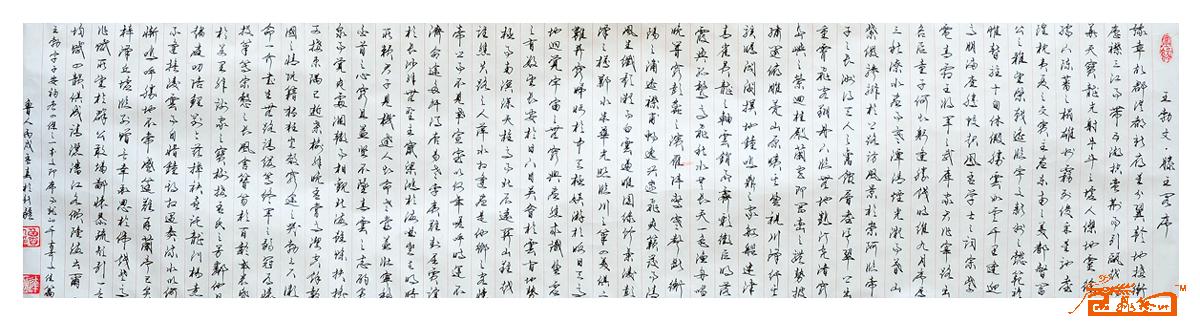 王勃文·滕王閣序
豫章故郡洪都新府星分翼軫地接衡
廬襟三江而帶五湖控蠻荊而引甌越物
華天寶龍光射牛斗之墟人傑地靈徐
孺下陳蕃之榻雄州霧列俊采星馳臺
隍枕夷夏之交賓主盡東南之美都督閻
公之雅望棨戟遙臨宇文新州之懿範襜
帷暫駐十旬休假勝友如雲千里逢迎
高朋滿座騰蛟起鳳孟學士之詞宗紫
電青霜王將軍之武庫家君作宰路
出名區童子何知躬逢勝餞時維九月序屬
三秋潦水盡而寒潭清煙光凝而暮山
紫儼驂騑於上路訪風景於崇阿臨帝
子之長洲得天人之舊館層巒聳翠上出
重霄飛閣翔丹下臨無地鶴汀鳧渚窮
島嶼之縈迴桂殿蘭宮即岡巒之體勢披
繡闥俯雕甍山原曠其盈視川澤紆其
駭矚閭閻撲地鐘鳴鼎食之家舸艦迷津
青雀黃龍之軸雲銷雨霽彩徹區明落
霞與孤鶩齊飛秋水共長天一色漁舟唱
晚響窮彭蠡之濱雁陣驚寒聲斷衡
陽之浦遙襟甫暢逸興遄飛爽籟發而清
風生纖歌凝而白雲遏睢園綠竹氣凌彭
澤之樽鄴水朱華光照臨川之筆四美具二
難并窮睇眄於中天極娛遊於暇日天高
地迥覺宇宙之無窮興盡悲來識盈虛
之有數望長安於日下目吳會於雲間地勢
極而南溟深天柱高而北辰遠關山難越
誰悲失路之人萍水相逢盡是他鄉之客懷
帝閽而不見奉宣室以何年嗟乎時運不
濟命途多舛馮唐易老李廣難封屈賈誼
於長沙非無聖主竄梁鴻於海曲豈乏明時
所賴君子見機達人知命老當益壯寧移
白首之心窮且益堅不墜青雲之志酌貪
泉而覺爽處涸轍以相歡北海雖賒扶搖
可接東隅已逝桑榆非晚孟嘗高潔空餘報
國之情阮籍猖狂豈效窮途之哭勃三尺微
命一介書生無路請纓等終軍之弱冠有懷
投筆慕宗愨之長風舍簪笏於百齡奉晨昏
於萬里非謝家之寶樹接孟氏之芳鄰他日
趨庭叨陪鯉對今茲捧袂喜託龍門楊意
不逢撫凌雲而自惜鍾期既遇奏流水以何
慚嗚呼勝地不常盛筵難再蘭亭已矣
梓澤丘墟臨別贈言幸承恩於偉餞登高
作賦是所望於群公敢竭鄙懷恭疏短引一言
均賦四韻俱成請灑潘江各傾陸海云爾
王勃字子安
魯人丙戌立夏於